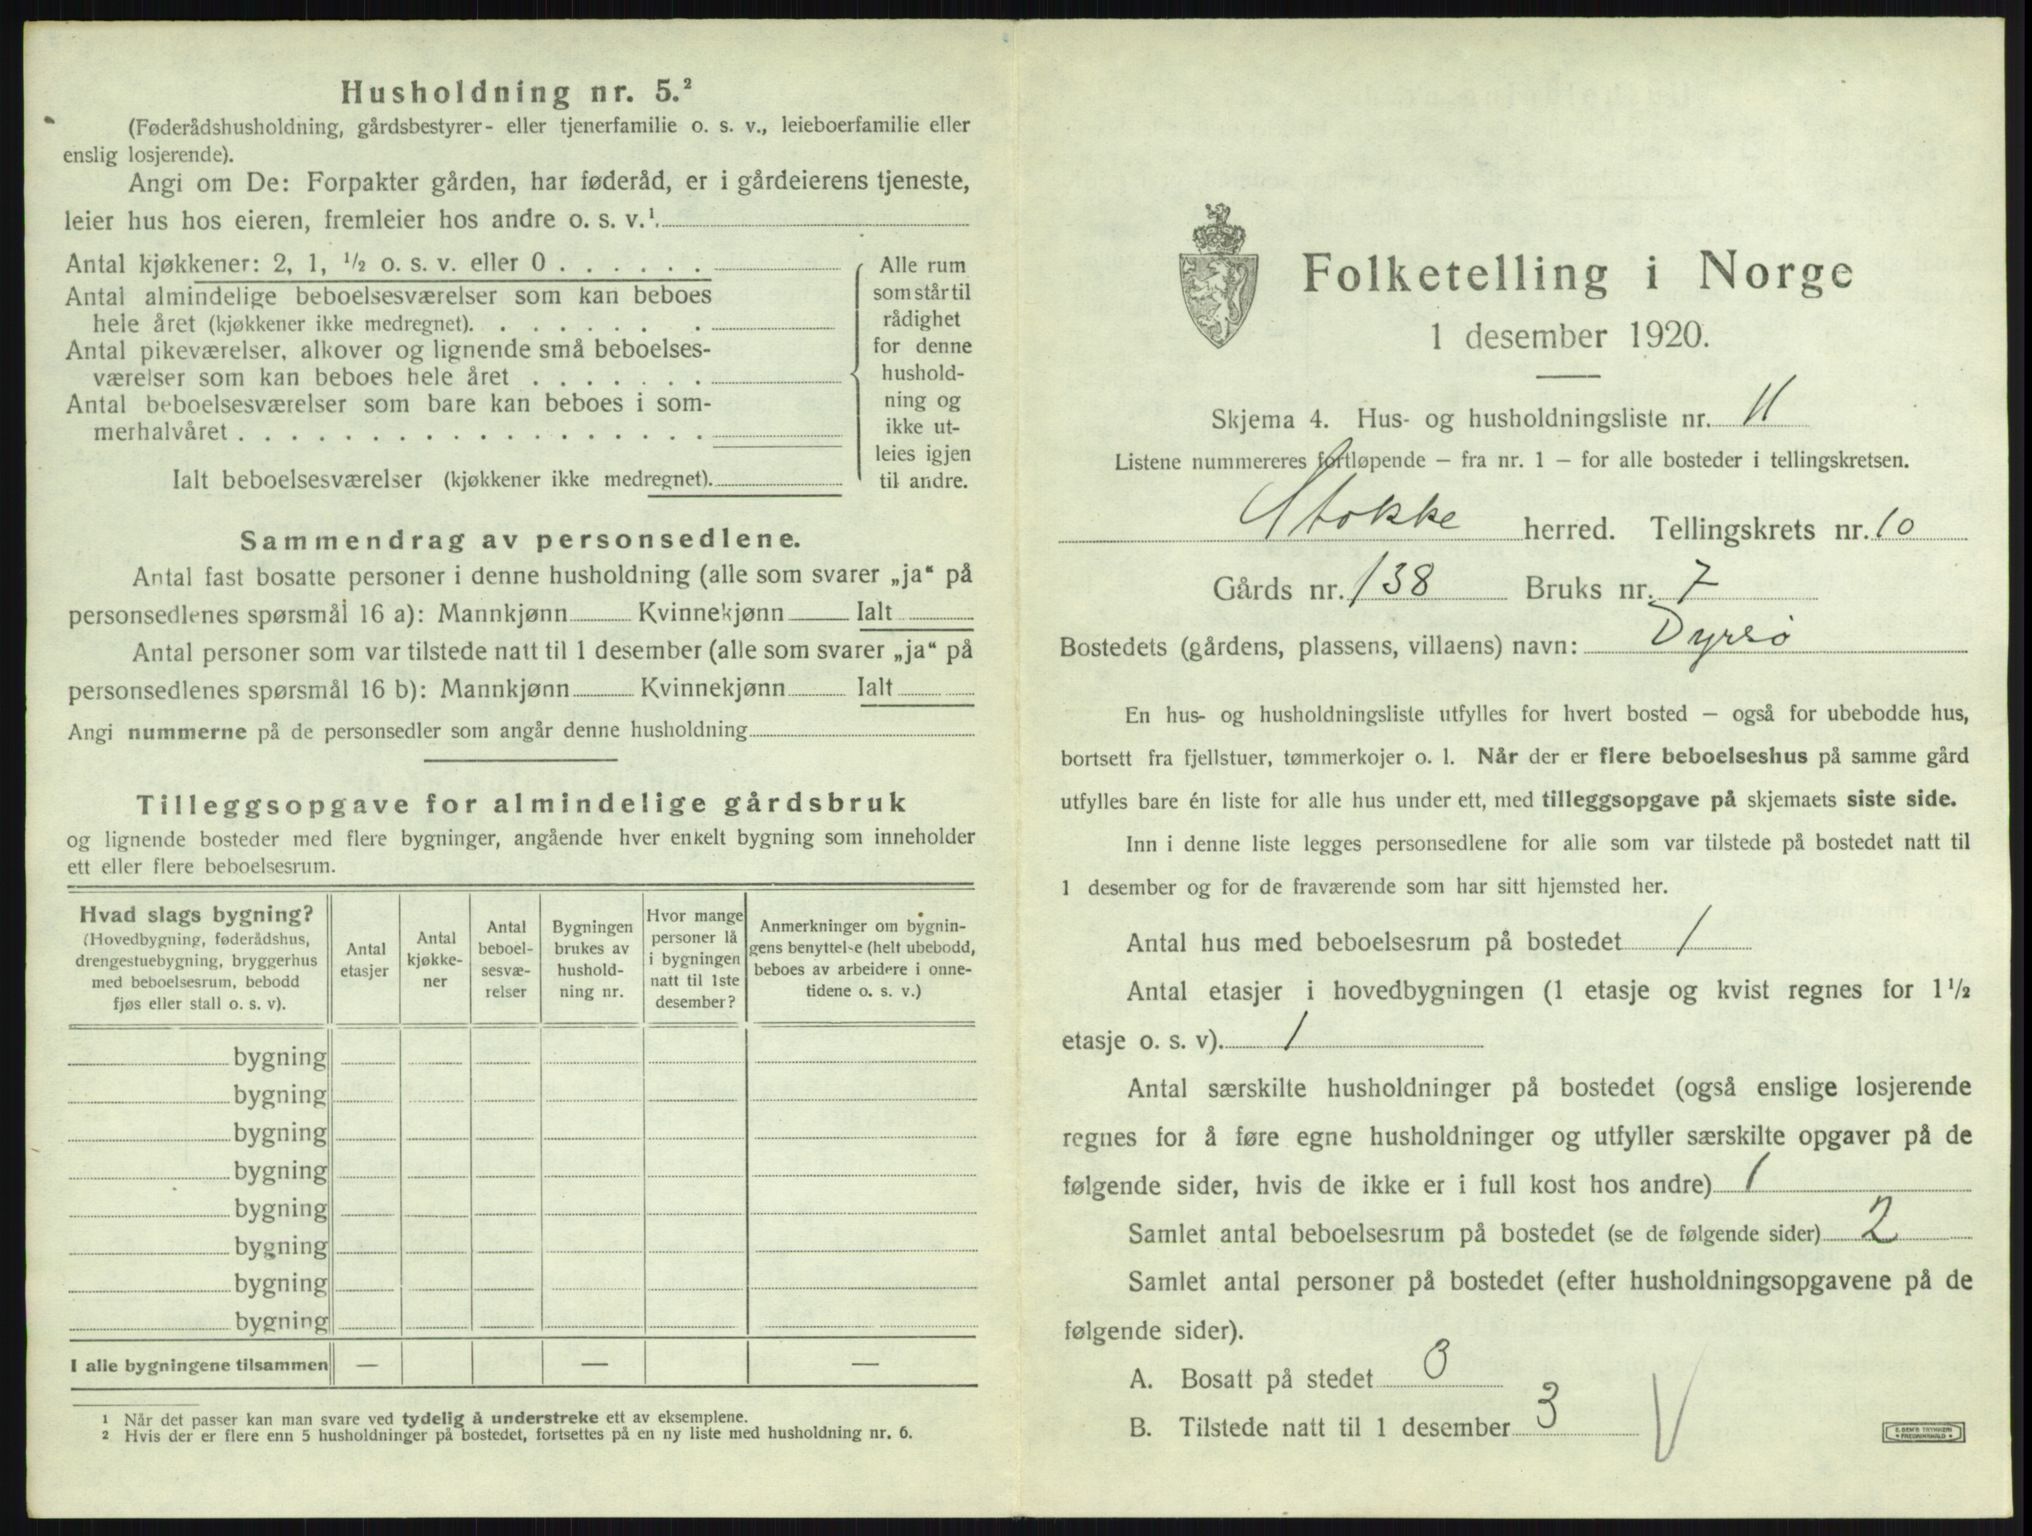 Husholdning nr. 5.²
(Føderådshusholdning, gårdsbestyrer- eller tjenerfamilie o. s. v., leieboerfamilie eller
enslig losjerende).
Angi om De: Forpakter gården, har føderåd, er i gårdeierens tjeneste,
leier hus hos eieren, fremleier hos andre o. s. v.¹.
Antal kjøkkener: 2, 1, ½ o. s. v. eller 0 . . . . . .
Antal almindelige beboelsesværelser som kan beboes
hele året (kjøkkener ikke medregnet). . . . . . . .
Antal pikeværelser, alkover og lignende små beboelses-
værelser som kan beboes hele året . . . . . . .
Antal beboelsesværelser som bare kan beboes i som-
merhalvåret . . . . . . . . . . . . . . . . . .
Ialt beboelsesværelser (kjøkkener ikke medregnet).
Alle rum
som står til
rådighet
for denne
hushold-
ning og
ikke ut-
leies igjen
til andre.
Sammendrag av personsedlene.
Antal fast bosatte personer i denne husholdning (alle som svarer „ja“ på
personsedlenes spørsmål 16 a): Mannkjønn Kvinnekjønn Ialt
Antal personer som var tilstede natt til 1 desember (alle som svarer „ja“ på
personsedlenes spørsmål 16 b): Mannkjønn Kvinnekjønn Ialt
Angi nummerne på de personsedler som angår denne husholdning
Tilleggsopgave for almindelige gårdsbruk
og lignende bosteder med flere bygninger, angående hver enkelt bygning som inneholder
ett eller flere beboelsesrum.
Hvad slags bygning?
(Hovedbygning, føderådshus,
drengestuebygning, bryggerhus
med beboelsesrum, bebodd
fjøs eller stall o. s. v).
Antal
etasjer
Antal
kjøkke-
ner
Antal
beboel-
sesvæ-
relser
Bygningen
brukes av
hushold-
ning nr.
Hvor mange
personer lå
i bygningen
natt til 1ste
desember?
Anmerkninger om bygnin-
gens benyttelse (helt ubebodd,
beboes av arbeidere i onne-
tidene o. s. v.)
bygning
bygning
bygning
bygning
bygning
bygning
bygning
bygning
I alle bygningene tilsammen — — —
¹ Når det passer kan man svare ved tydelig å understreke ett av eksemplene.
² Hvis der er flere enn 5 husholdninger på bostedet, fortsettes på en ny liste med husholdning nr. 6.
Folketelling i Norge
1 desember 1920.
Skjema 4. Hus- og husholdningsliste nr. 11
Listene nummereres fortløpende – fra nr. 1 – for alle bosteder i tellingskretsen.
Stokke herred. Tellingskrets nr. 10
Gårds nr. 138 Bruks nr. 7
Bostedets (gårdens, plassens, villaens) navn: Dyrsø
En hus- og husholdningsliste utfylles for hvert bosted – også for ubebodde hus,
bortsett fra fjellstuer, tømmerkojer o. l. Når der er flere beboelseshus på samme gård
utfylles bare én liste for alle hus under ett, med tilleggsopgave på skjemaets siste side.
Inn i denne liste legges personsedlene for alle som var tilstede på bostedet natt til
1 desember og for de fraværende som har sitt hjemsted her.
Antal hus med beboelsesrum på bostedet 1
Antal etasjer i hovedbygningen (1 etasje og kvist regnes for 1½
etasje o. s. v). 1
Antal særskilte husholdninger på bostedet (også enslige losjerende
regnes for å føre egne husholdninger og utfyller særskilte opgaver på de
følgende sider, hvis de ikke er i full kost hos andre) 1
Samlet antal beboelsesrum på bostedet (se de følgende sider) 2
Samlet antal personer på bostedet (efter husholdningsopgavene på de
følgende sider).
A. Bosatt på stedet 3
B. Tilstede natt til 1 desember 3